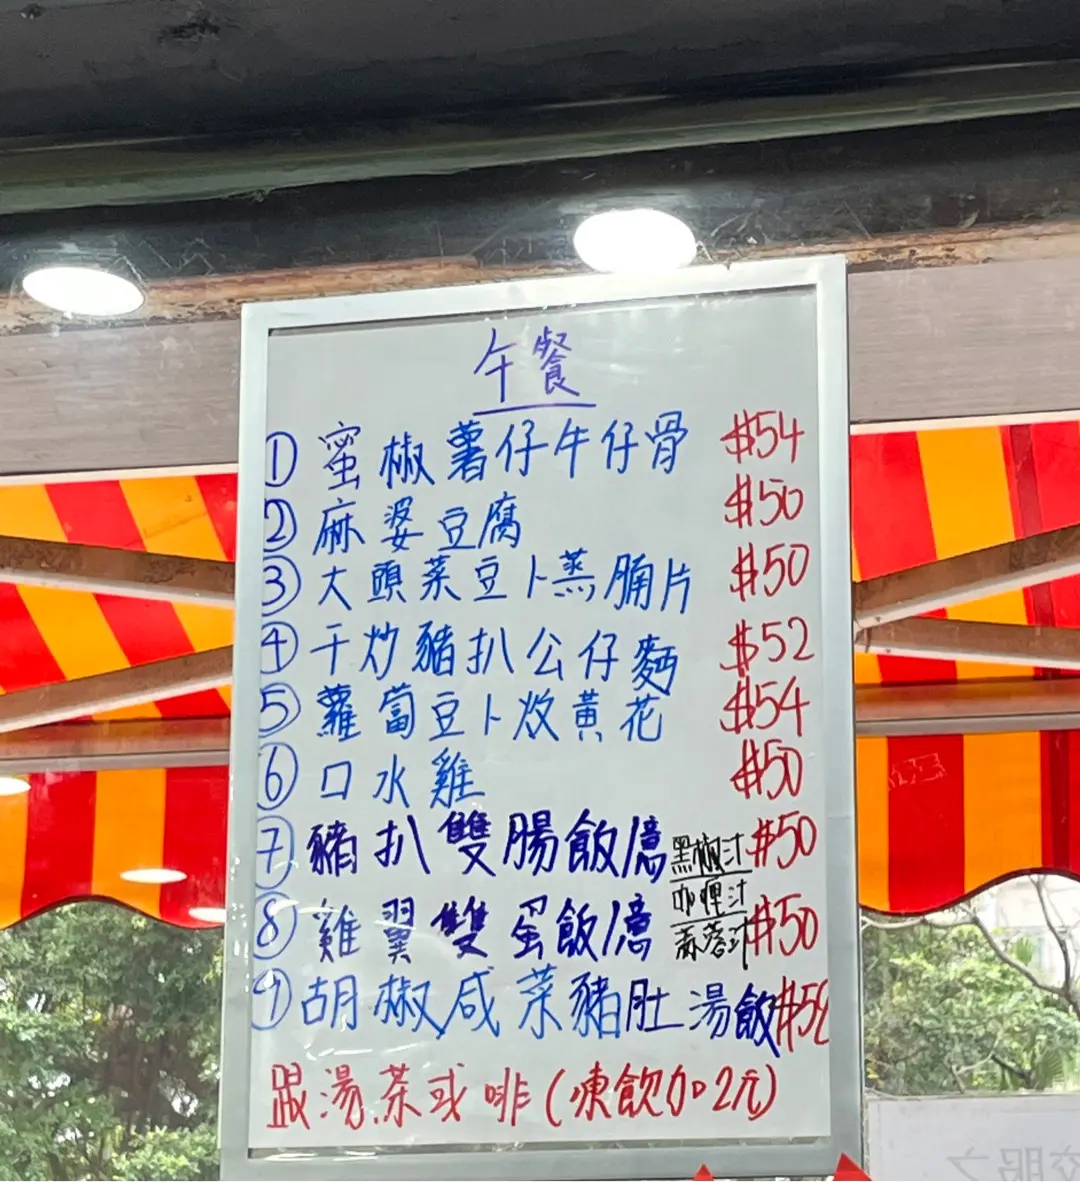 午餐
① 蜜椒薯仔牛仔骨 $54
② 麻婆豆腐 $50
③ 大頭菜豆卜蒸腩片 $50
④ 干炒豬扒公仔麵 $52
⑤ 蘿蔔豆卜炆黃花 $54
⑥ 口水雞 $50
⑦ 豬扒雙腸飯/意 $50
黑椒汁
咖喱汁
蒜蓉汁
⑧ 雞翼雙蛋飯/意 $50
⑨ 胡椒咸菜豬肚湯飯
跟湯.茶或啡(凍飲加2元)